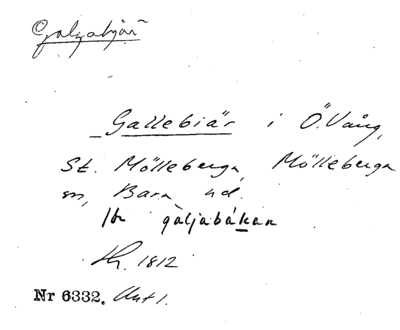 Galgabjär
Gallebiär i Ö. Vång,
St. Mölleberga, Mölleberga
sn, Bara hd.
galjabákan
1812
Nr 6332.